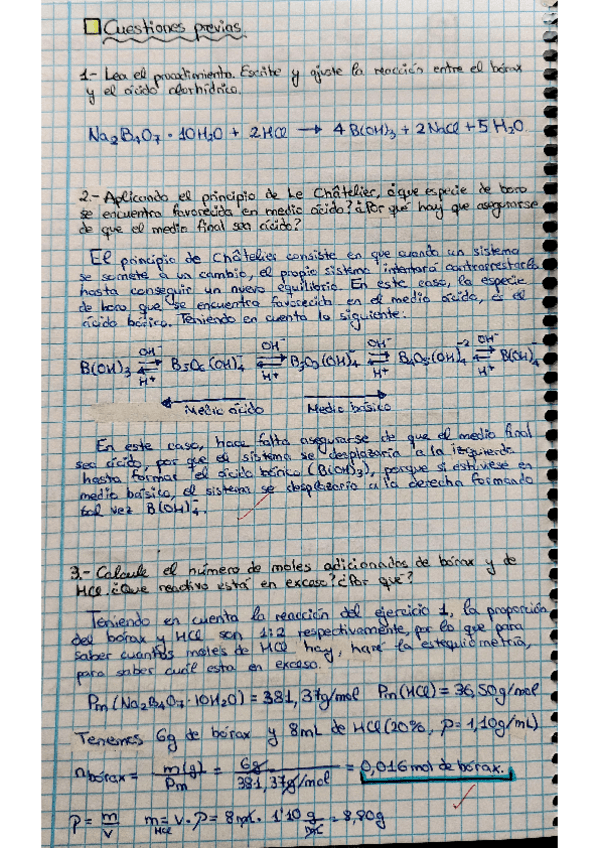 Cuestiones previas.
1.- Lea el procedimiento. Escribe y ajuste la reacción entre el bórax
y el ácido clorhídrico.
Na₂B₄O₇ · 10H₂O + 2HCl → 4 B(OH)₃ + 2NaCl + 5H₂O
2.- Aplicando el principio de Le Châtelier, ¿que especie de boro
se encuentra favorecida en medio ácido? ¿Por qué hay que asegurarse
de que el medio final sea ácido?
El principio de Châtelier consiste en que cuando un sistema
se somete a un cambio, el propio sistema intentará contrarrestarlo
hasta conseguir un nuevo equilibrio. En este caso, la especie
de boro que se encuentra favorecida en el medio ácido, es el
ácido bórico. Teniendo en cuenta lo siguiente:
OH⁻ OH⁻ OH⁻ OH⁻
B(OH)₃ ⇌ B₅O₆(OH)₄⁻ ⇌ B₃O₃(OH)₄⁻ ⇌ B₄O₅(OH)₄⁻² ⇌ B(OH)₄⁻
H⁺ H⁺ H⁺ H⁺
Medio ácido Medio básico
En este caso, hace falta asegurarse de que el medio final
sea ácido, por que el sistema se desplazaría a la izquierda
hasta formar el ácido bórico (B(OH)₃), porque si estuviese en
medio básico, el sistema se desplazaría a la derecha formando
tal vez B(OH)₄⁻.
3.- Calcule el número de moles adicionados de bórax y de
HCl. ¿Que reactivo está en exceso? ¿Por qué?
Teniendo en cuenta la reacción del ejercicio 1, la proporción
del bórax y HCl son 1:2 respectivamente, por lo que para
saber cuantos moles de HCl hay, haré la estequiometría,
para saber cuál esta en exceso.
Pm (Na₂B₄O₇·10H₂O) = 381,37g/mol Pm(HCl) = 36,50g/mol
Tenemos 6g de bórax y 8mL de HCl (20%, ρ=1,10g/mL)
n bórax = m(g)/Pm = 6g/381,37g/mol = 0,016 mol de bórax.
ρ = m/v m HCl = v·ρ = 8mL · 1'10 g/mL = 8,80g